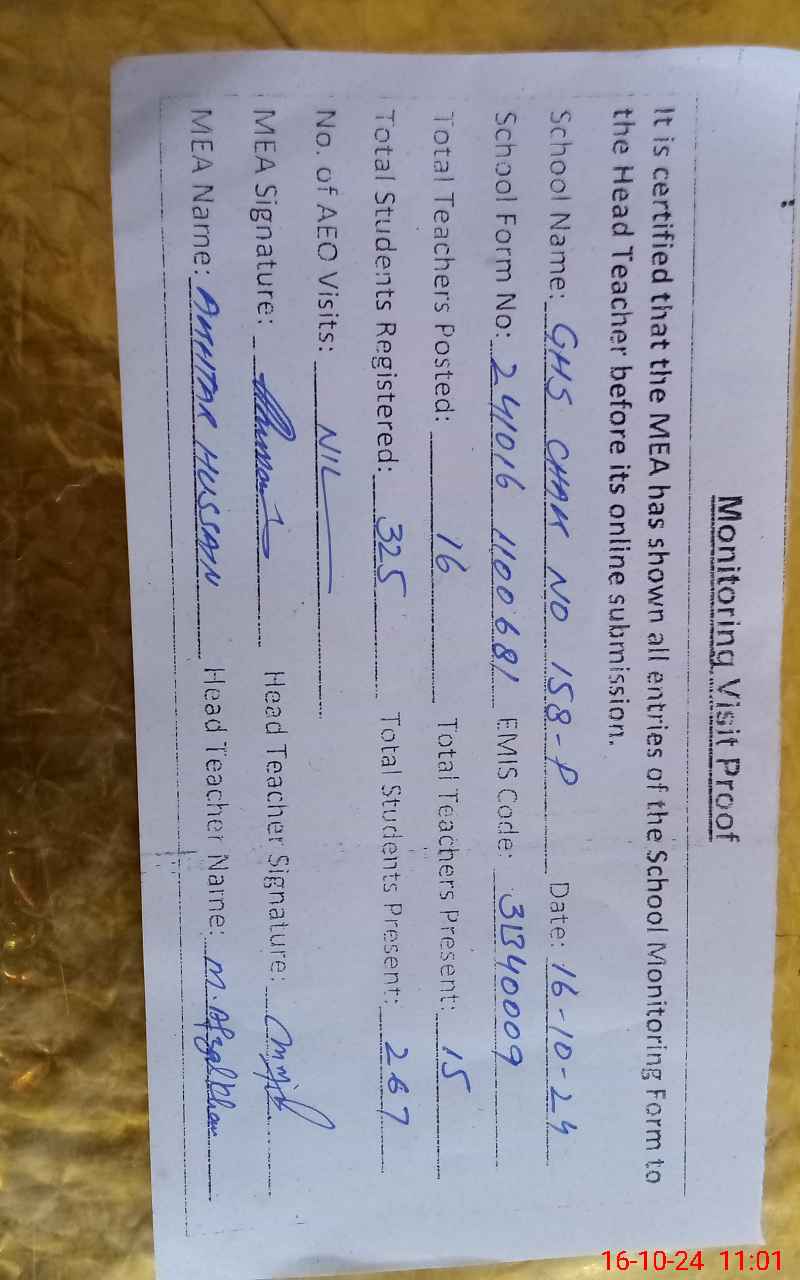 Monitoring Visit Proof
It is certified that the MEA has shown all entries of the School Monitoring Form to
the Head Teacher before its online submission.
School Name: GHS CHAK NO 158-P Date: 16-10-24
School Form No: 241016 1100681 EMIS Code: 31340009
Total Teachers Posted: 16 Total Teachers Present: 15
Total Students Registered: 325 Total Students Present: 267
No. of AEO Visits: NIL
MEA Signature: Head Teacher Signature:
MEA Name: HUSSAIN Head Teacher Name: M. Afzal Khan
16-10-24 11:01